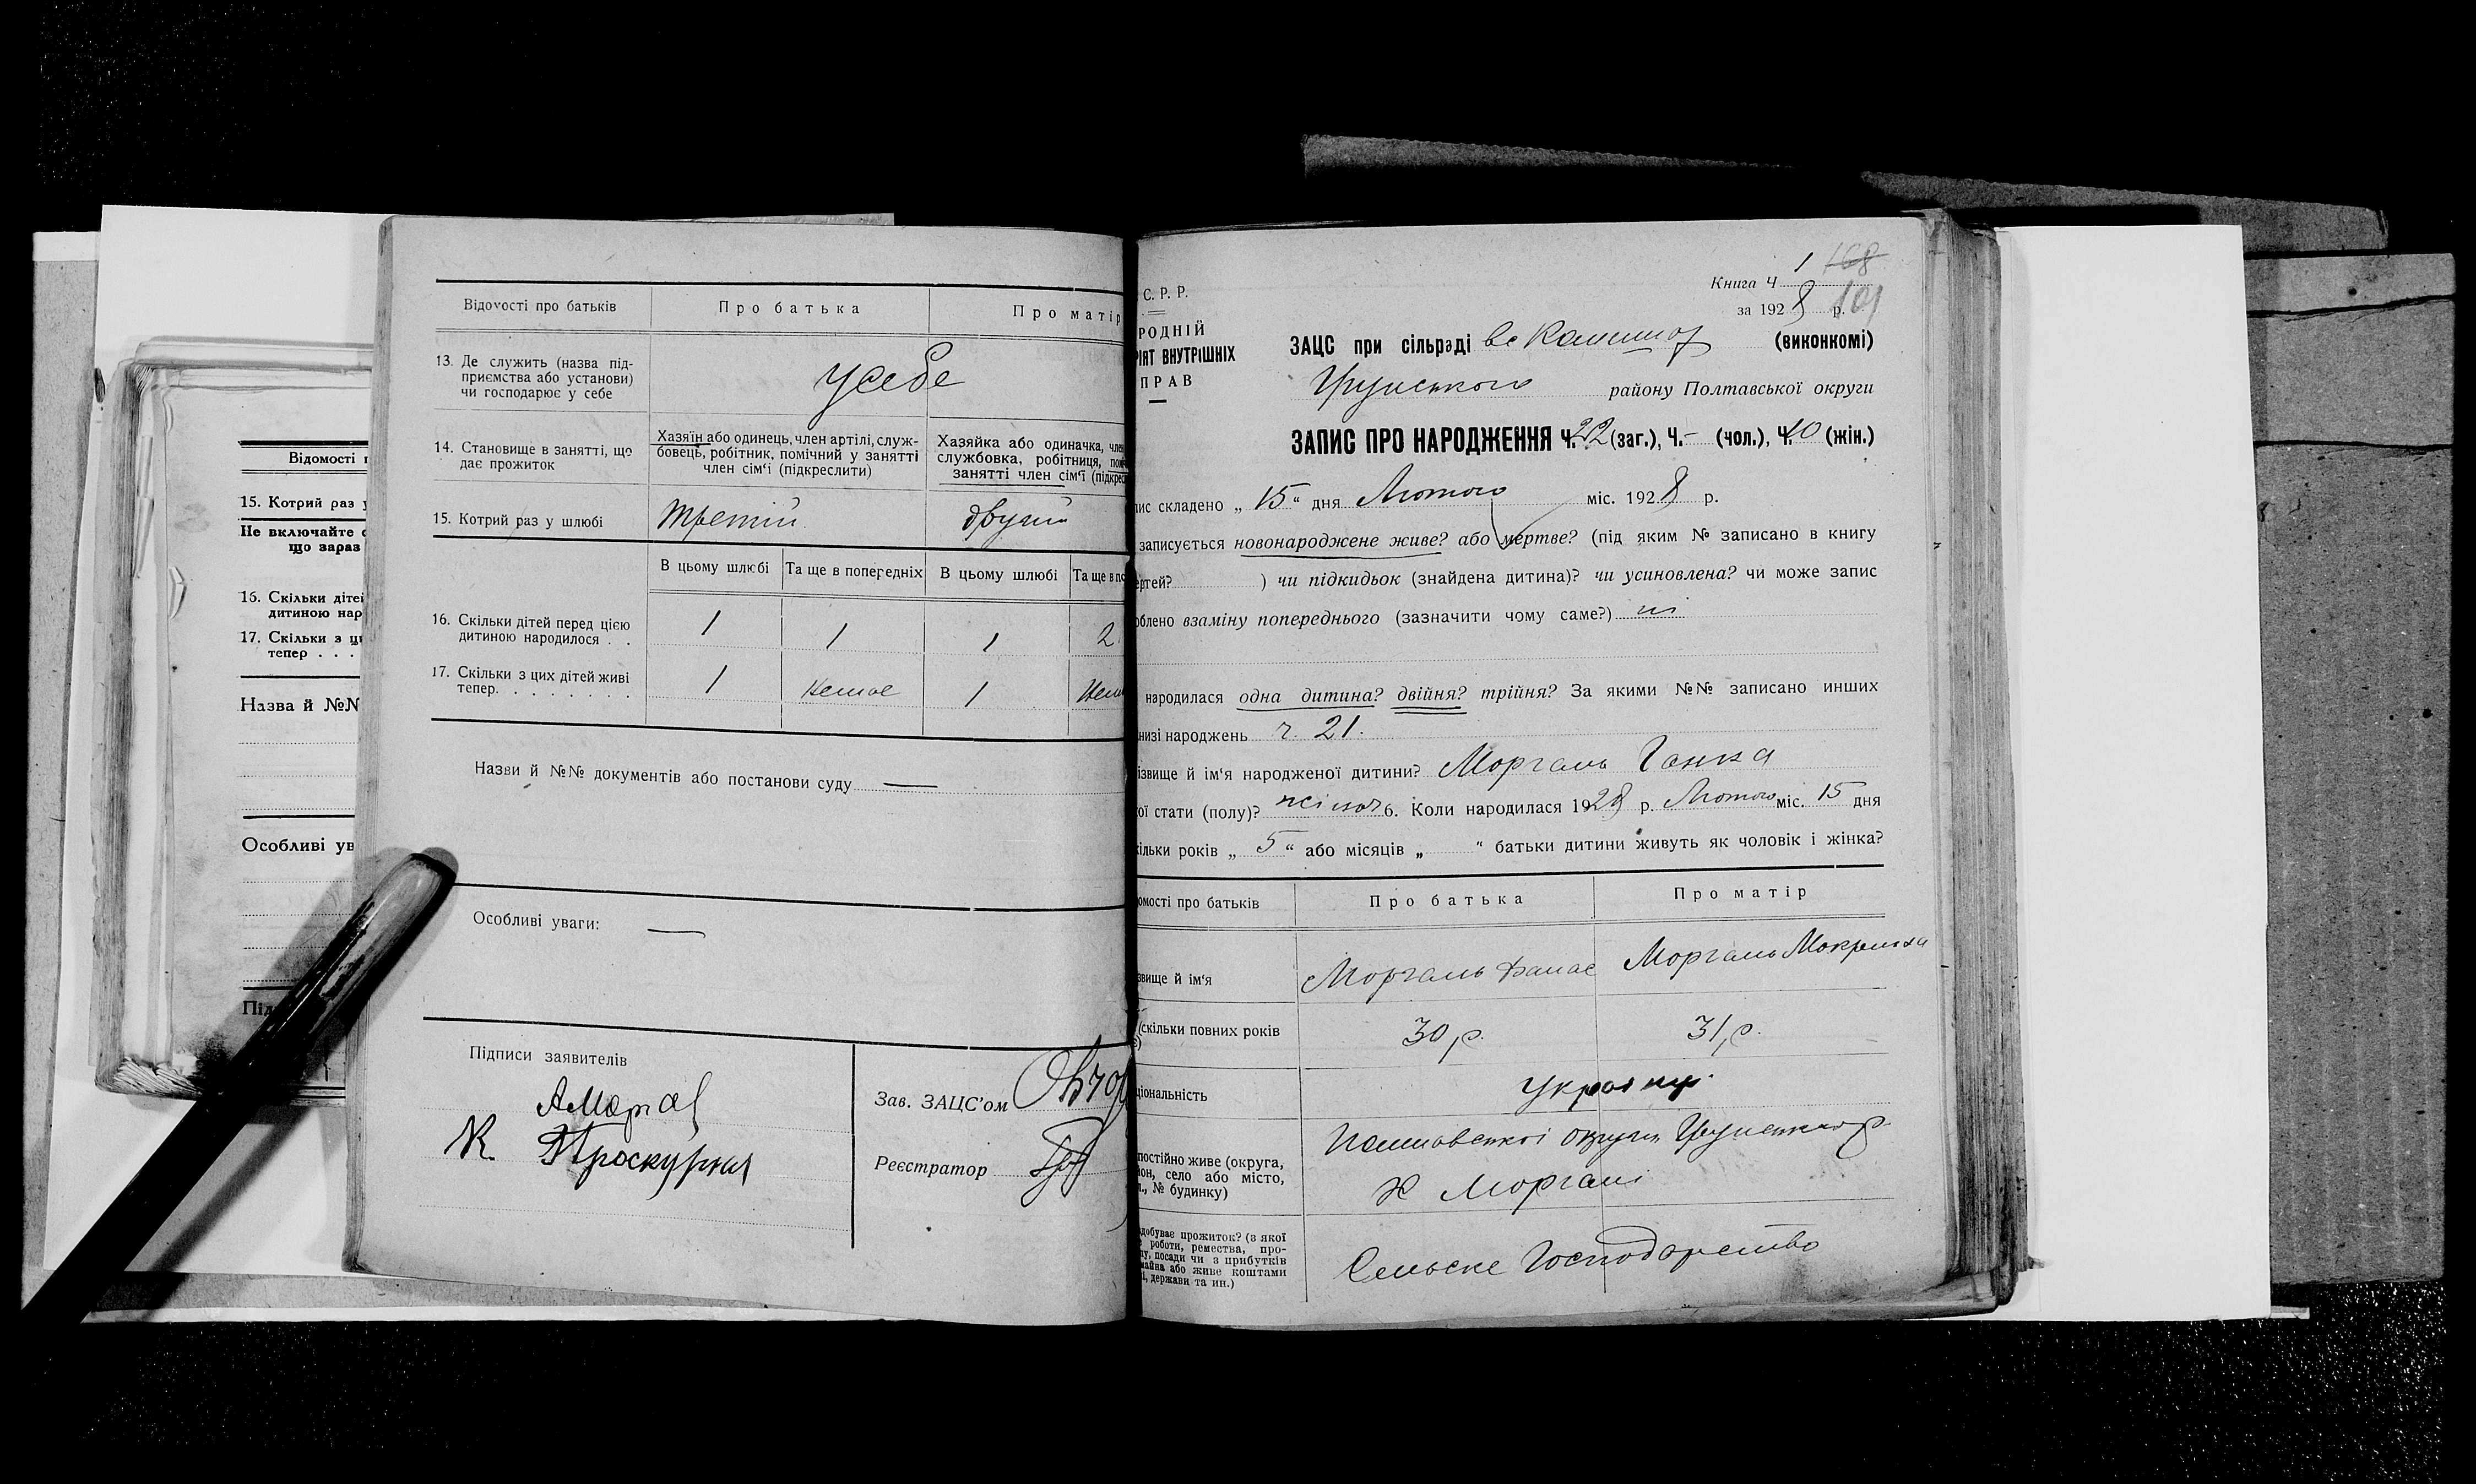 Відомості п
15. Котрий раз у
Не включайте
що зараз
16. Скільки дітей
дитиною нар
17. Скільки з ц
тепер . . .
Назва й №№
Особливі ув
Під
Відомості про батьків
Про батька
Про матір
13. Де служить (назва під-
приємства або установи)
чи господарює у себе
у себе
14. Становище в занятті, що
дає прожиток
Хазяїн або одинець, член артілі, служ-
бовець, робітник, помічний у занятті
член сім'ї (підкреслити)
Хазяйка або одиначка, член
службовка, робітниця, помі
занятті член сім'ї (підкрес
15. Котрий раз у шлюбі
третій
другий
В цьому шлюбі
Та ще в попередніх
В цьому шлюбі
Та ще в по
16. Скільки дітей перед цією
дитиною народилося . .
1
1
1
2
17. Скільки з цих дітей живі
тепер. . . . . . . .
1
немає
1
нем
Назви й №№ документів або постанови суду —
Особливі уваги: —
Підписи заявителів
А Моргаль
К Проскурня
Зав. ЗАЦС'ом
Реєстратор
С. Р. Р.
РОДНІЙ
РІЯТ ВНУТРІШНІХ
ПРАВ
Книга Ч 1
168
за 1928 р.
101
ЗАЦС при сільраді (виконкомі)
району Полтавської округи
ЗАПИС ПРО НАРОДЖЕННЯ Ч. 22 (заг.), Ч. - (чол.), Ч. 10 (жін.)
пис складено „ 15 “ дня Лютого міс. 1928 р.
записується новонароджене живе? або мертве? (під яким № записано в книгу
ертей? ) чи підкидьок (знайдена дитина)? чи усиновлена? чи може запис
облено взаміну попереднього (зазначити чому саме?) ні
народилася одна дитина? двійня? трійня? За якими №№ записано инших
низі народжень ч. 21.
ізвище й ім'я народженої дитини? Моргаль Ганна
ої стати (полу)? жіноч 6. Коли народилася 1928 р. Лютого міс. 15 дня
ільки років „ 5 “ або місяців „ “ батьки дитини живуть як чоловік і жінка?
омості про батьків
Про батька
Про матір
звище й ім'я
Моргаль Панас
Моргаль Мокрина
(скільки повних років
30 р.
31 р.
ціональність
Українці
постійно живе (округа,
йон, село або місто,
л., № будинку)
Полтавської округи
Х Моргалі
здобуває прожиток? (з якої
роботи, ремества, про-
ду, посади чи з прибутків
майна або живе коштами
і, держави та ин.)
Сельске Господарство